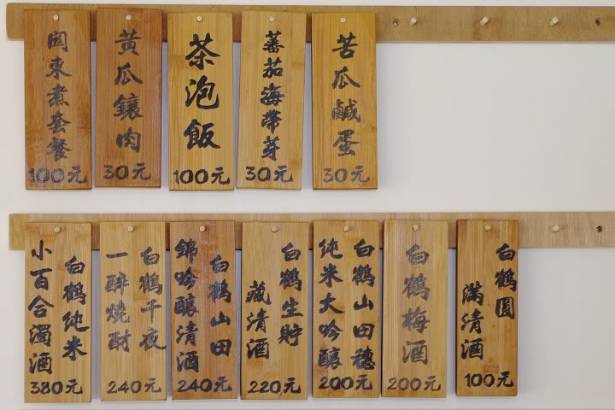 關東煮套餐
100元
黃瓜鑲肉
30元
茶泡飯
100元
蕃茄海帶芽
30元
苦瓜鹹蛋
30元
白鶴純米
小百合濁酒
380元
白鶴千夜
一醉燒酎
240元
白鶴山田
錦吟釀清酒
240元
白鶴生貯
藏清酒
220元
白鶴山田穗
純米大吟釀
200元
白鶴梅酒
200元
白鶴圓
滿清酒
100元